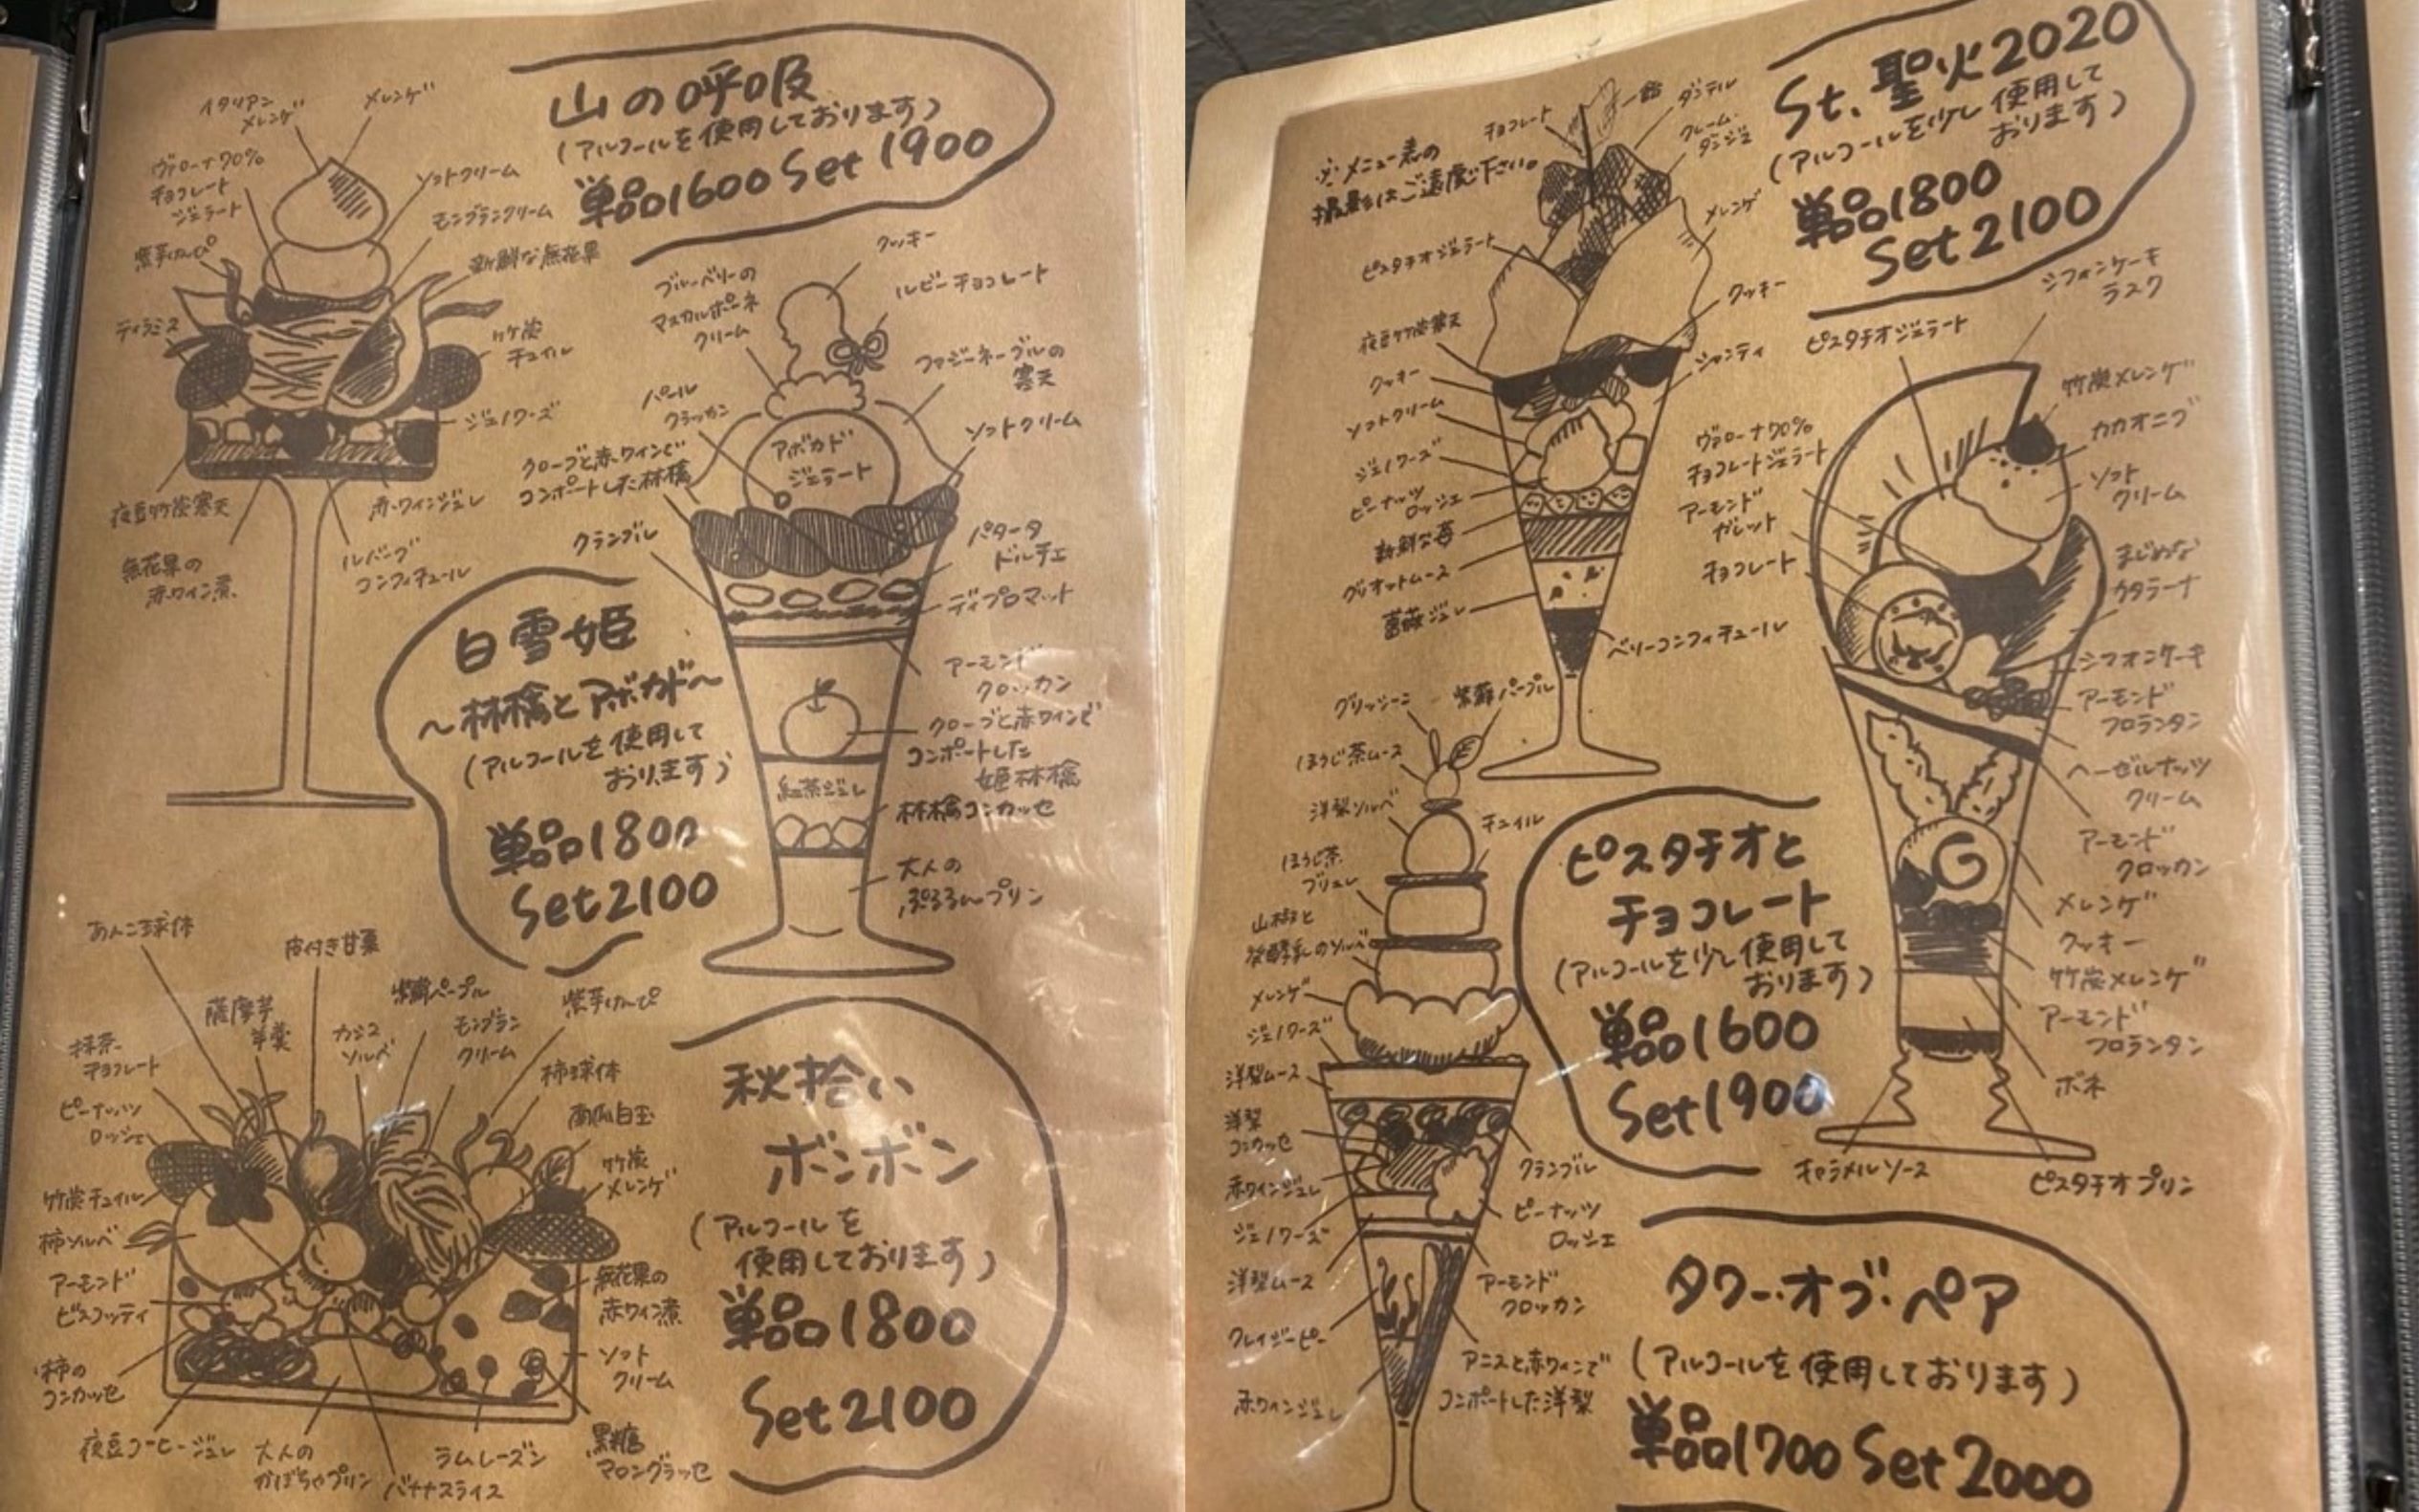 山の呼吸
(アルコールを使用しております)
単品1600 Set 1900
イタリアン
メレンゲ
メレンゲ
ヴァローナ70%
チョコレート
ジェラート
ソフトクリーム
モンブランクリーム
紫芋けんぴ
新鮮な無花果
ティラミス
竹炭
チュイル
ジェノワーズ
夜豆竹炭寒天
赤ワインジュレ
無花果の
赤ワイン煮
ルバーブ
コンフィチュール
クッキー
ブルーベリーの
マスカルポーネ
クリーム
ルビーチョコレート
ファジーネーブルの
寒天
パール
クラッカン
ソフトクリーム
アボカド
ジェラート
クローブと赤ワインで
コンポートした林檎
クランブル
パタータ
ドルチェ
ディプロマット
アーモンド
クロッカン
クローブと赤ワインで
コンポートした
姫林檎
紅茶ジュレ
林檎コンカッセ
大人の
ぷるるんプリン
白雪姫
〜林檎とアボカド〜
(アルコールを使用して
おります)
単品1800
Set2100
あんこ球体
皮付き甘栗
薩摩芋
羊羹
カシス
ソルベ
紫蘇パープル
モンブラン
クリーム
紫芋けんぴ
抹茶
チョコレート
柿球体
ピーナッツ
ロッシェ
南瓜白玉
竹炭
メレンゲ
竹炭チュイル
柿ソルベ
アーモンド
ビスコッティ
無花果の
赤ワイン煮
柿の
コンカッセ
ソフト
クリーム
夜豆コーヒージュレ
大人の
かぼちゃプリン
バナナスライス
ラムレーズン
黒糖
マロングラッセ
秋拾い
ボンボン
(アルコールを
使用しております)
単品1800
Set2100
St.聖火2020
(アルコールを少し使用して
おります)
単品1800
Set2100
※メニュー表の
撮影はご遠慮下さい。
チョコレート
飴
ダンテル
クレーム・
ダンジェ
メレンゲ
ピスタチオジェラート
クッキー
夜豆竹炭寒天
シャンティ
クッキー
ソフトクリーム
ジェノワーズ
ピーナッツ
ロッシェ
新鮮な苺
グリオットムース
薔薇ジュレ
ベリーコンフィチュール
シフォンケーキ
ラスク
ピスタチオジェラート
竹炭メレンゲ
カカオニブ
ソフト
クリーム
ヴァローナ70%
チョコレートジェラート
アーモンド
ガレット
チョコレート
まじめな
カタラーナ
シフォンケーキ
アーモンド
フロランタン
ヘーゼルナッツ
クリーム
アーモンド
クロッカン
メレンゲ
クッキー
竹炭メレンゲ
アーモンド
フロランタン
ボネ
キャラメルソース
ピスタチオプリン
ピスタチオと
チョコレート
(アルコールを少し使用して
おります)
単品1600
Set1900
グリッシーニ
紫蘇パープル
ほうじ茶ムース
洋梨ソルベ
チュイル
ほうじ茶
ブリュレ
山椒と
発酵乳のソルベ
メレンゲ
ジェノワーズ
洋梨ムース
洋梨
コンカッセ
赤ワインジュレ
クランブル
ピーナッツ
ロッシェ
ジェノワーズ
洋梨ムース
アーモンド
クロッカン
クレイジーピー
アニスと赤ワインで
コンポートした洋梨
赤ワインジュレ
タワー・オブ・ペア
(アルコールを使用しております)
単品1700 Set 2000